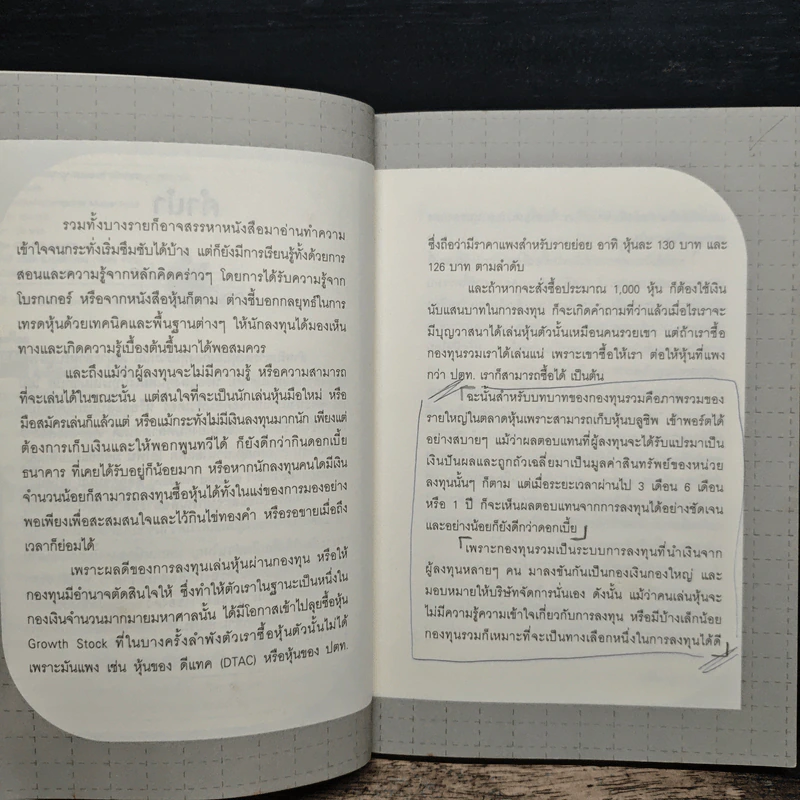 รวมทั้งบางรายก็อาจสรรหาหนังสือมาอ่านทำความ
เข้าใจจนกระทั่งเริ่มซึมซับได้บ้าง แต่ก็ยังมีการเรียนรู้ทั้งด้วยการ
สอนและความรู้จากหลักคิดคร่าวๆ โดยการได้รับความรู้จาก
โบรกเกอร์ หรือจากหนังสือหุ้นก็ตาม ต่างชี้บอกกลยุทธ์ในการ
เทรดหุ้นด้วยเทคนิคและพื้นฐานต่างๆ ให้นักลงทุนได้มองเห็น
ทางและเกิดความรู้เบื้องต้นขึ้นมาได้พอสมควร
และถึงแม้ว่าผู้ลงทุนจะไม่มีความรู้ หรือความสามารถ
ที่จะเล่นได้ในขณะนั้น แต่สนใจที่จะเป็นนักเล่นหุ้นมือใหม่ หรือ
มือสมัครเล่นก็แล้วแต่ หรือแม้กระทั่งไม่มีเงินลงทุนมากนัก เพียงแต่
ต้องการเก็บเงินและให้พอกพูนทวีได้ ก็ยังดีกว่ากินดอกเบี้ย
ธนาคาร ที่เคยได้รับอยู่ก็น้อยมาก หรือหากนักลงทุนคนใดมีเงิน
จำนวนน้อยก็สามารถลงทุนซื้อหุ้นได้ทั้งในแง่ของการมองอย่าง
พอเพียงเพื่อสะสมสนใจและไว้กินไข่ทองคำ หรือรอขายเมื่อถึง
เวลาก็ย่อมได้
เพราะผลดีของการลงทุนเล่นหุ้นผ่านกองทุน หรือให้
กองทุนมีอำนาจตัดสินใจให้ ซึ่งทำให้ตัวเราในฐานะเป็นหนึ่งใน
กองเงินจำนวนมากมายมหาศาลนั้น ได้มีโอกาสเข้าไปลุยซื้อหุ้น
Growth Stock ที่ในบางครั้งลำพังตัวเราซื้อหุ้นตัวนั้นไม่ได้
เพราะมันแพง เช่น หุ้นของ ดีแทค (DTAC) หรือหุ้นของ ปตท.
ซึ่งถือว่ามีราคาแพงสำหรับรายย่อย อาทิ หุ้นละ 130 บาท และ
126 บาท ตามลำดับ
และถ้าหากจะสั่งซื้อประมาณ 1,000 หุ้น ก็ต้องใช้เงิน
นับแสนบาทในการลงทุน ก็จะเกิดคำถามที่ว่าแล้วเมื่อไรเราจะ
มีบุญวาสนาได้เล่นหุ้นตัวนั้นเหมือนคนรวยเขา แต่ถ้าเราซื้อ
กองทุนรวมเราได้เล่นแน่ เพราะเขาซื้อให้เรา ต่อให้หุ้นที่แพง
กว่า ปตท. เราก็สามารถซื้อได้ เป็นต้น
ฉะนั้นสำหรับบทบาทของกองทุนรวมคือภาพรวมของ
รายใหญ่ในตลาดหุ้นเพราะสามารถเก็บหุ้นบลูชิพ เข้าพอร์ตได้
อย่างสบายๆ แม้ว่าผลตอบแทนที่ผู้ลงทุนจะได้รับแปรมาเป็น
เงินปันผลและถูกถัวเฉลี่ยมาเป็นมูลค่าสินทรัพย์ของหน่วย
ลงทุนนั้นๆ ก็ตาม แต่เมื่อระยะเวลาผ่านไป 3 เดือน 6 เดือน
หรือ 1 ปี ก็จะเห็นผลตอบแทนจากการลงทุนได้อย่างชัดเจน
และอย่างน้อยก็ยังดีกว่าดอกเบี้ย
เพราะกองทุนรวมเป็นระบบการลงทุนที่นำเงินจาก
ผู้ลงทุนหลายๆ คน มาลงขันกันเป็นกองเงินกองใหญ่ และ
มอบหมายให้บริษัทจัดการนั่นเอง ดังนั้น แม้ว่าคนเล่นหุ้นจะ
ไม่มีความรู้ความเข้าใจเกี่ยวกับการลงทุน หรือมีบ้างเล็กน้อย
กองทุนรวมก็เหมาะที่จะเป็นทางเลือกหนึ่งในการลงทุนได้ดี